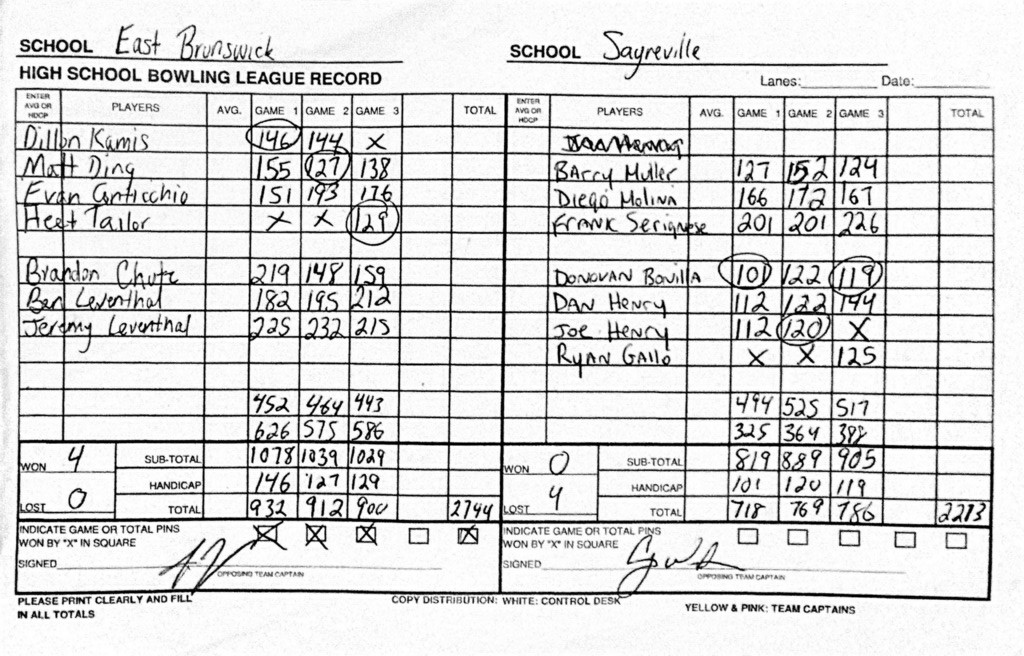 SCHOOL East Brunswick SCHOOL Sayreville
HIGH SCHOOL BOWLING LEAGUE RECORD Lanes: Date:
ENTER AVG OR HDCP PLAYERS AVG. GAME 1 GAME 2 GAME 3 TOTAL ENTER AVG OR HDCP PLAYERS AVG. GAME 1 GAME 2 GAME 3 TOTAL
Dillon Kamis 146 144 X
Matt Ding 155 127 138 BArry Muller 127 152 124
Evan Conticchio 151 193 176 Diego Molina 166 172 167
Heet Tailor X X 129 FrANK Serignese 201 201 226
Brandon Chutz 219 148 159 DONOVAN BONILLA 101 122 119
Ben Leventhal 182 195 212 DAN HENRY 112 122 144
Jeremy Leventhal 225 232 215 JOE HENRY 112 120 X
RYAN GAllO X X 125
452 464 443 494 525 517
626 575 586 325 364 388
WON 4 SUB-TOTAL 1078 1039 1029 WON 0 SUB-TOTAL 819 889 905
HANDICAP 146 127 129 HANDICAP 101 120 119
LOST 0 TOTAL 932 912 900 2744 LOST 4 TOTAL 718 769 786 2273
INDICATE GAME OR TOTAL PINS WON BY "X" IN SQUARE X X X X INDICATE GAME OR TOTAL PINS WON BY "X" IN SQUARE
SIGNED OPPOSING TEAM CAPTAIN SIGNED OPPOSING TEAM CAPTAIN
PLEASE PRINT CLEARLY AND FILL IN ALL TOTALS COPY DISTRIBUTION: WHITE: CONTROL DESK YELLOW & PINK: TEAM CAPTAINS